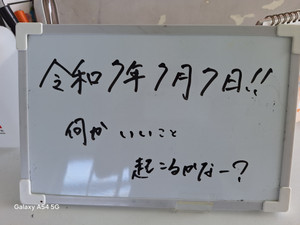 令和7年7月7日!!
何かいいこと
起こるかなー?
Galaxy A54 5G